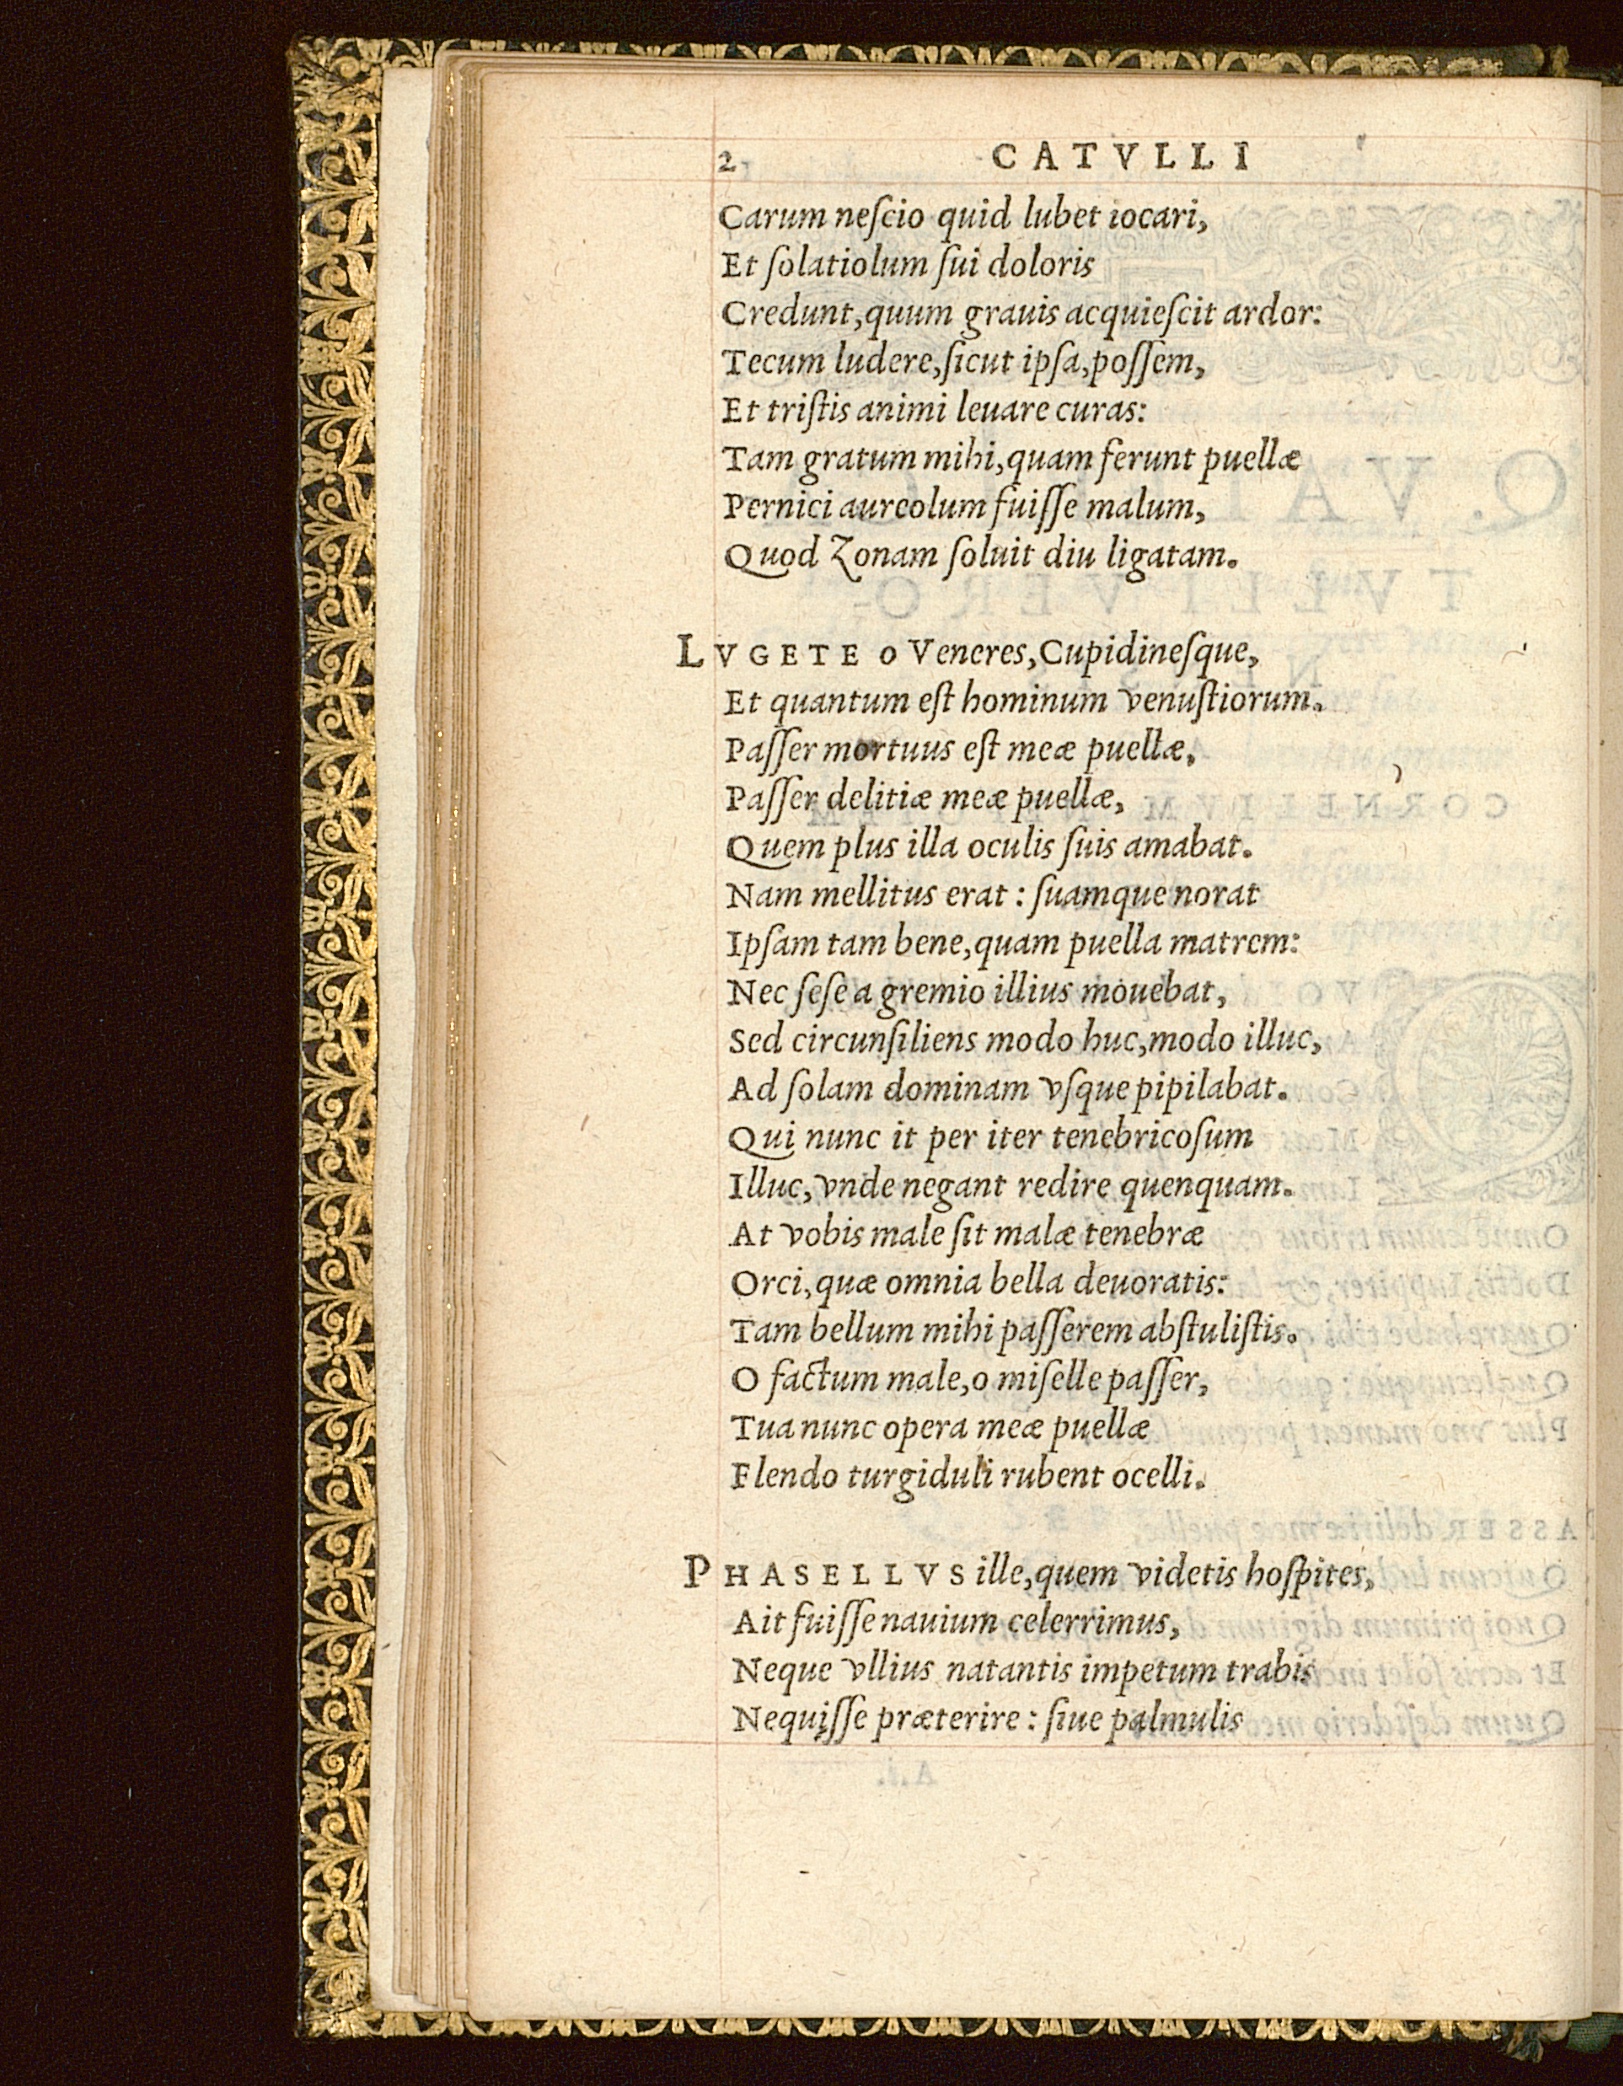 2 CATVLLI
Carum neſcio quid lubet iocari,
Et ſolatiolum ſui doloris
Credunt, quum grauis acquieſcit ardor:
Tecum ludere, ſicut ipſa, poſſem,
Et triſtis animi leuare curas:
Tam gratum mihi, quam ferunt puellæ
Pernici aureolum fuiſſe malum,
Quod Zonam ſoluit diu ligatam.
LVGETE o Veneres, Cupidineſque,
Et quantum eſt hominum venuſtiorum.
Paſſer mortuus eſt meæ puellæ,
Paſſer delitiæ meæ puellæ,
Quem plus illa oculis ſuis amabat.
Nam mellitus erat : ſuamque norat
Ipſam tam bene, quam puella matrem:
Nec ſeſe a gremio illius mouebat,
Sed circunſiliens modo huc, modo illuc,
Ad ſolam dominam vſque pipilabat.
Qui nunc it per iter tenebricoſum
Illuc, vnde negant redire quenquam.
At vobis male ſit malæ tenebræ
Orci, quæ omnia bella deuoratis:
Tam bellum mihi paſſerem abſtuliſtis.
O factum male, o miſelle paſſer,
Tua nunc opera meæ puellæ
Flendo turgiduli rubent ocelli.
PHASELLVS ille, quem videtis hoſpites,
Ait fuiſſe nauium celerrimus,
Neque vllius natantis impetum trabis
Nequiſſe præterire : ſiue palmulis